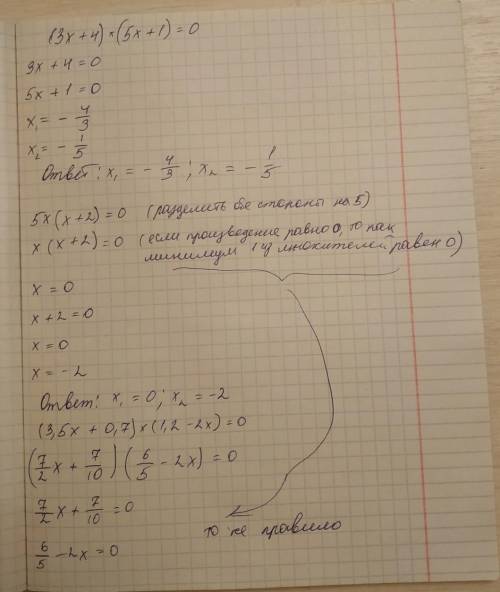 (3x+4)×(5x+1)=0
3x+4=0
5x+1=0
x₁= - 4/3
x₂= - 1/5
Ответ: x₁ = - 4/3 ; x₂ = - 1/5
5x(x+2)=0 (разделить обе стороны на 5)
x(x+2)=0 (если произведение равно 0, то как
минимум 1 из множителей равен 0)
x = 0
x+2=0
x=0
x=-2
Ответ: x₁ = 0; x₂ = -2
(3,5x + 0,7)×(1,2-2x)=0
(7/2x + 7/10)(6/5 - 2x) = 0
7/2x + 7/10 = 0
то же правило
6/5 - 2x = 0